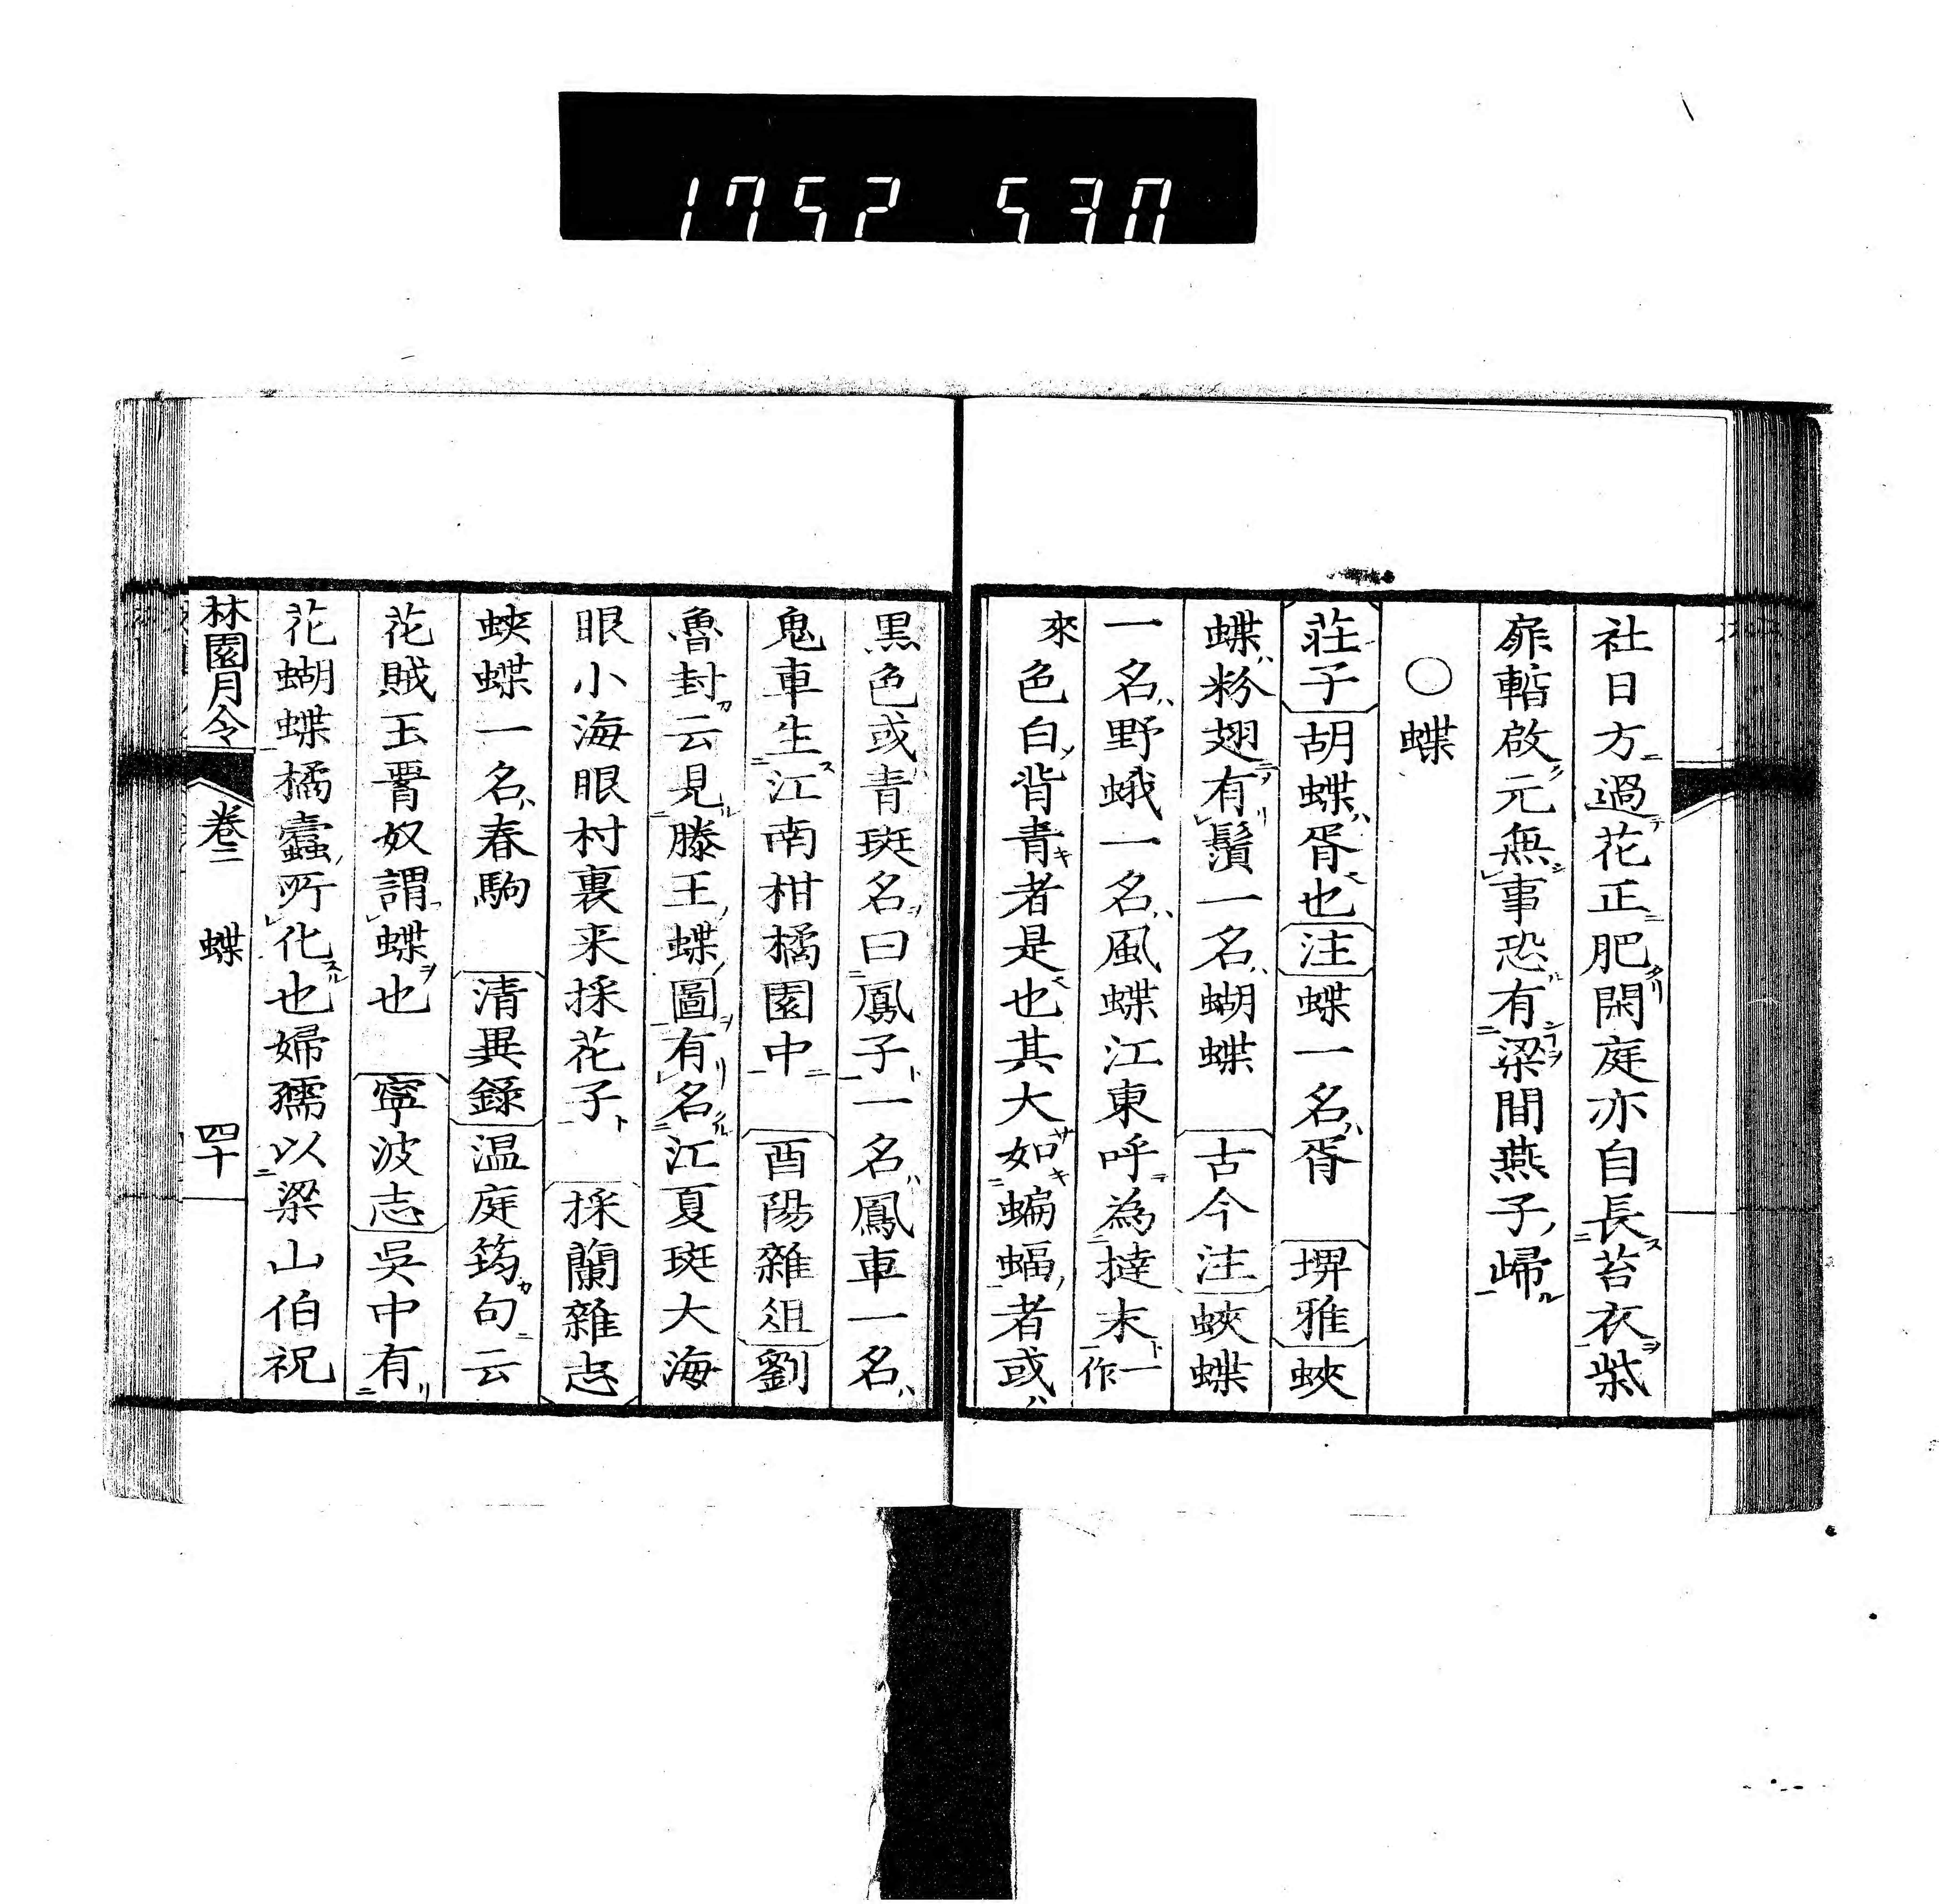 1752 530
社日方過花正肥閑庭亦自長苔衣柴
扉暫啟元無事恐有梁間燕子歸
〇蝶
莊子胡蝶胥也注蝶一名胥 埤雅蛺
蝶粉翅有鬚一名蝴蝶 古今注蛺蝶
一名野蛾一名風蝶江東呼為撻末一作
來色白背青者是也其大如蝙蝠者或
黒色或青斑名曰鳳子一名鳳車一名
鬼車生江南柑橘園中 酉陽雜俎劉
魯封云見滕王蝶圖有名江夏斑大海
眼小海眼村裏来採花子 採蘭雜志
蛺蝶一名春駒 清異錄温庭筠句云
花賊玉䏿奴謂蝶也 寧波志吳中有
花蝴蝶橘蠹所化也婦孺以梁山伯祝
林園月令 卷二 蝶 四十